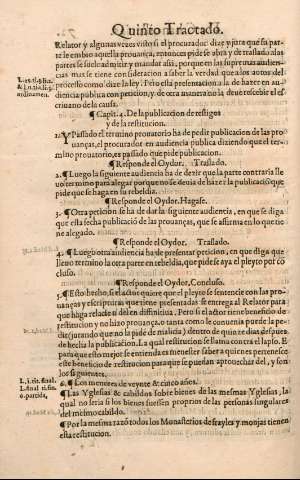 Quinto Tractado.
Relator y algunas vezes visto si el procurador dize y jura que sa parte le embio aquella prouança, entonces pide se abra y dè traslado a las partes se suele admitir y mandar assi, porque en las supremas audiencias mas se tiene consideracion a saber la verdad que a los autos del processo como dize la ley. Pero esta presentacion a de hazer en audiencia publica con peticion, y de otra manera no la deue rescebir el escriuano de la causa.
¶ Capit. 4. De la publicacion de testigos
y de la restitucion.
1. ¶ Passado el termino prouatorio ha de pedir publicacion de las prouanças, el procurador en audiencia publica diziendo que el termino prouatorio, es passado que pide publicacion.
¶ Responde el Oydor. Traslado.
2. ¶ Luego la siguiente audiencia ha de dezir que la parte contraria lleuo termino para alegar porque no se deuia de hazer la publicacion que pide que se haga en su rebeldia.
¶ Responde el Oydor. Hagase.
3. ¶ Otra peticion se ha de dar la siguiente audiencia, en que se diga que esta fecha publicacion de las prouanças, que se affirma en lo que tiene alegado.
¶ Responde el Oydor. Traslado.
4. ¶ Luego otra audiencia ha de presentar peticion, en que diga que lleuo termino la otra parte en rebeldia, que pide se aya el pleyto por concluso.
¶ Responde el Oydor, Concluso.
5. ¶ Esto hecho, si el actor quiere que el pleyto se sentencie con las prouanças y escripturas que tiene presentadas se entrega al Relator para que haga relacion del en diffinitiua. Pero si el actor tiene beneficio de restitucion y no hizo prouança o tanta como le conuenia puede la pedir (jurando que no la pide de malicia) dentro de quinze dias despues de hecha la publicacion. La qual restitucion se llama contra el lapso. E para que esto mejor se entienda es menester saber a quien pertenesce este beneficio de restitucion para que se puedan aprouechar del, y son los siguientes.
6. ¶ Los menores de veynte & cinco años.
¶ Las Yglesias & cabildos sobre bienes de las mesmas Yglesias, la qual no seria si los bienes fuessen proprios de las personas singulares del mesmo cabildo.
¶ Por la mesma razõ todos los Monasterios de frayles y monjas tienen esta restitucion.